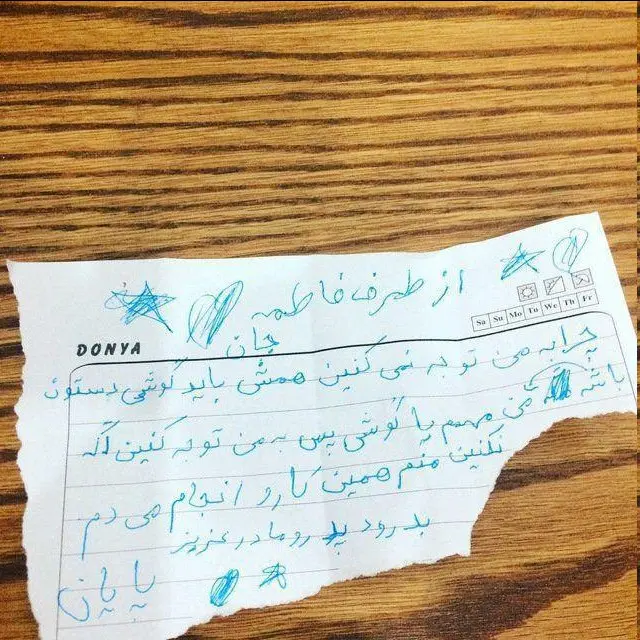 از طرف فاطمه
جان
DONYA
Sa Su Mo Tu We Th Fr
چرا به من توجه نمی کنین همش باید گوشی دستون
باشه من مهمم یا گوشی پس به من توجه کنین اگه
نکنین منم همین کارو انجام می دم
بدرود پدرو مادر عزیز
پایان